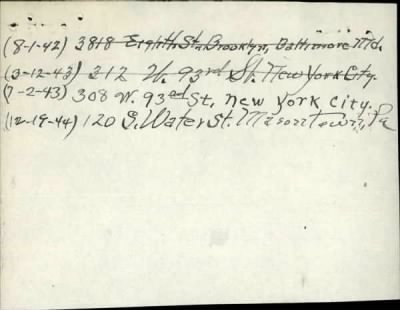 (8-1-42) 3818 Eighth St., Brooklyn, Baltimore Md.
(3-12-43) 312 W. 93rd St. New York City.
(7-2-43) 308 W. 93rd St, New York City.
(12-19-44) 120 S. Water St. Masontown, Pa